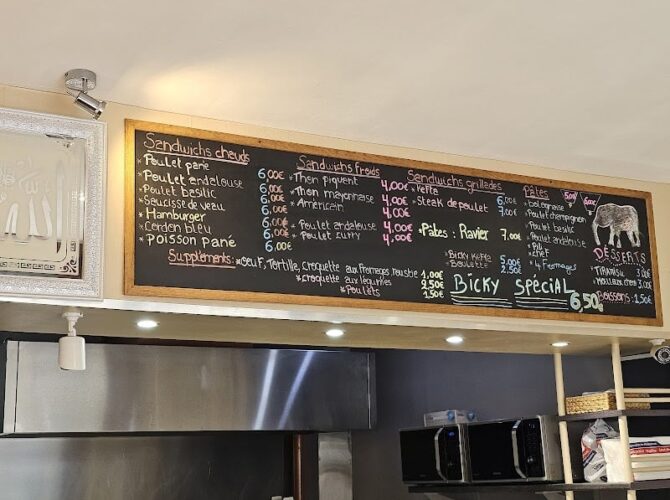 Sandwichs chauds
*Poulet pané 6,00€
*Poulet andalouse 6,00€
*Poulet basilic 6,00€
*Saucisse de veau 6,00€
*Hamburger 6,00€
*Cordon bleu 6,00€
*Poisson pané 6,00€
Sandwichs froids
*Thon piquent 4,00€
*Thon mayonnaise 4,00€
*Américain 4,00€
*Poulet andalouse 4,00€
*Poulet curry 4,00€
Sandwichs grillades
*Kefta 6,00
*Steak de poulet 7,00€
*Pâtes: Ravier 7,00€
*Bicky Kefta 5,00€
*Boulette 2,50€
Suppléments: *oeuf, Tortilla, Croquette aux Fromages, 1,00€
*Croquette aux légumes 2,50€
*Poulets 1,50€
Bicky Spécial 6,50€
Pâtes 5,00€ 6,00€
*bolognaise
*Poulet champignon
*Poulet basilic
*Poulet andalouse
*Pili
*chef
*4 fromages
DESSERTS
*TIRAMISU 3,00€
*Moilleux choc 3,00€
Boissons: 1,50€